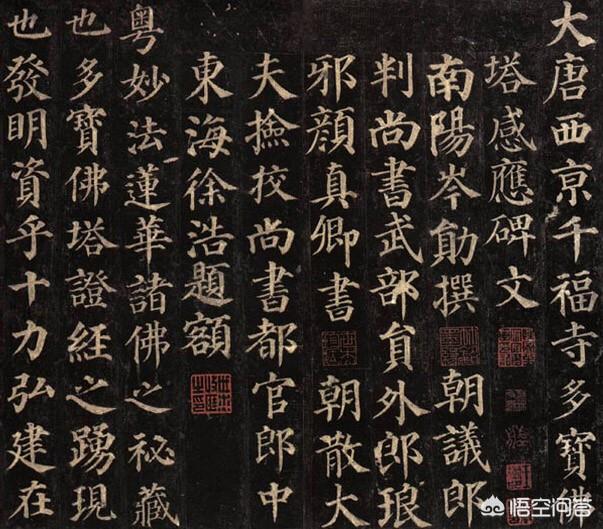 大唐西亰千福寺多寶佛
塔感應碑文
南陽岑勛撰 朝議郎
判尚書武部貟外郎琅
邪顏真卿書 朝散大
夫撿挍尚書都官郎中
東海徐浩題額
粵妙法蓮華諸佛之秘藏
也多寶佛塔證經之踴現
也發明資乎十力弘建在
悟空问答